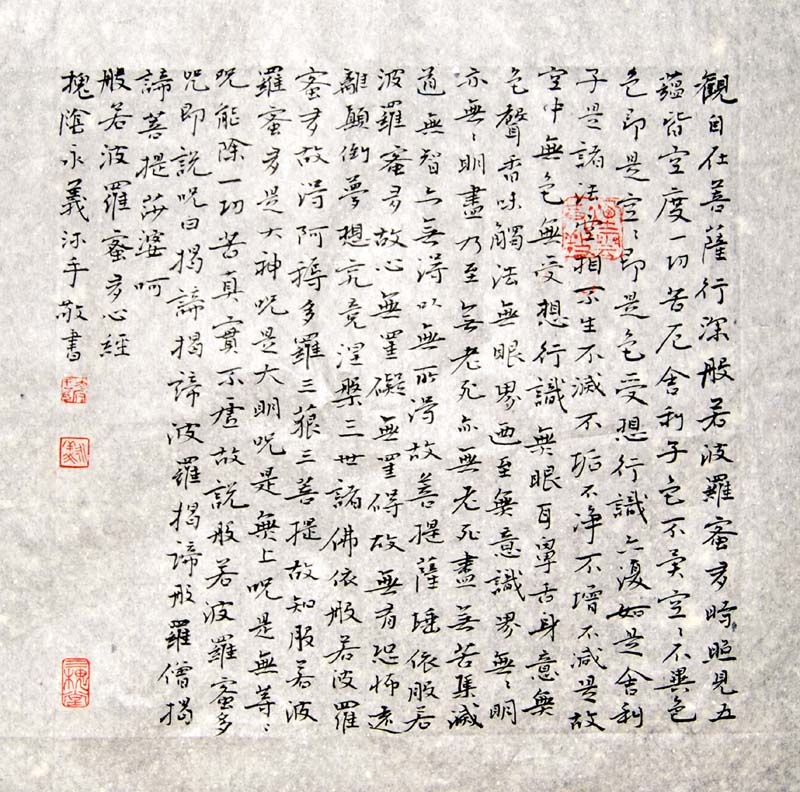 観自在菩薩行深般若波羅蜜多時照見五
蘊皆空度一切苦厄舍利子色不異空〻不異色
色即是空〻即是色受想行識亦復如是舍利
子是諸法空相不生不滅不垢不淨不增不減是故
空中無色無受想行識無眼耳鼻舌身意無
色聲香味觸法無眼界迺至無意識界無〻明
亦無〻明盡乃至無老死亦無老死盡無苦集滅
道無智亦無得以無所得故菩提薩埵依般若
波羅蜜多故心無罣礙無罣碍故無有恐怖遠
離顛倒夢想究竟涅槃三世諸佛依般若波羅
蜜多故得阿耨多羅三藐三菩提故知般若波
羅蜜多是大神咒是大明咒是無上咒是無等〻
咒能除一切苦真實不虛故説般若波羅蜜多
咒即説咒曰揭諦揭諦波羅揭諦般羅僧揭
諦菩提莎婆呵
般若波羅蜜多心經
槐陰永義沐手敬書
三槐堂